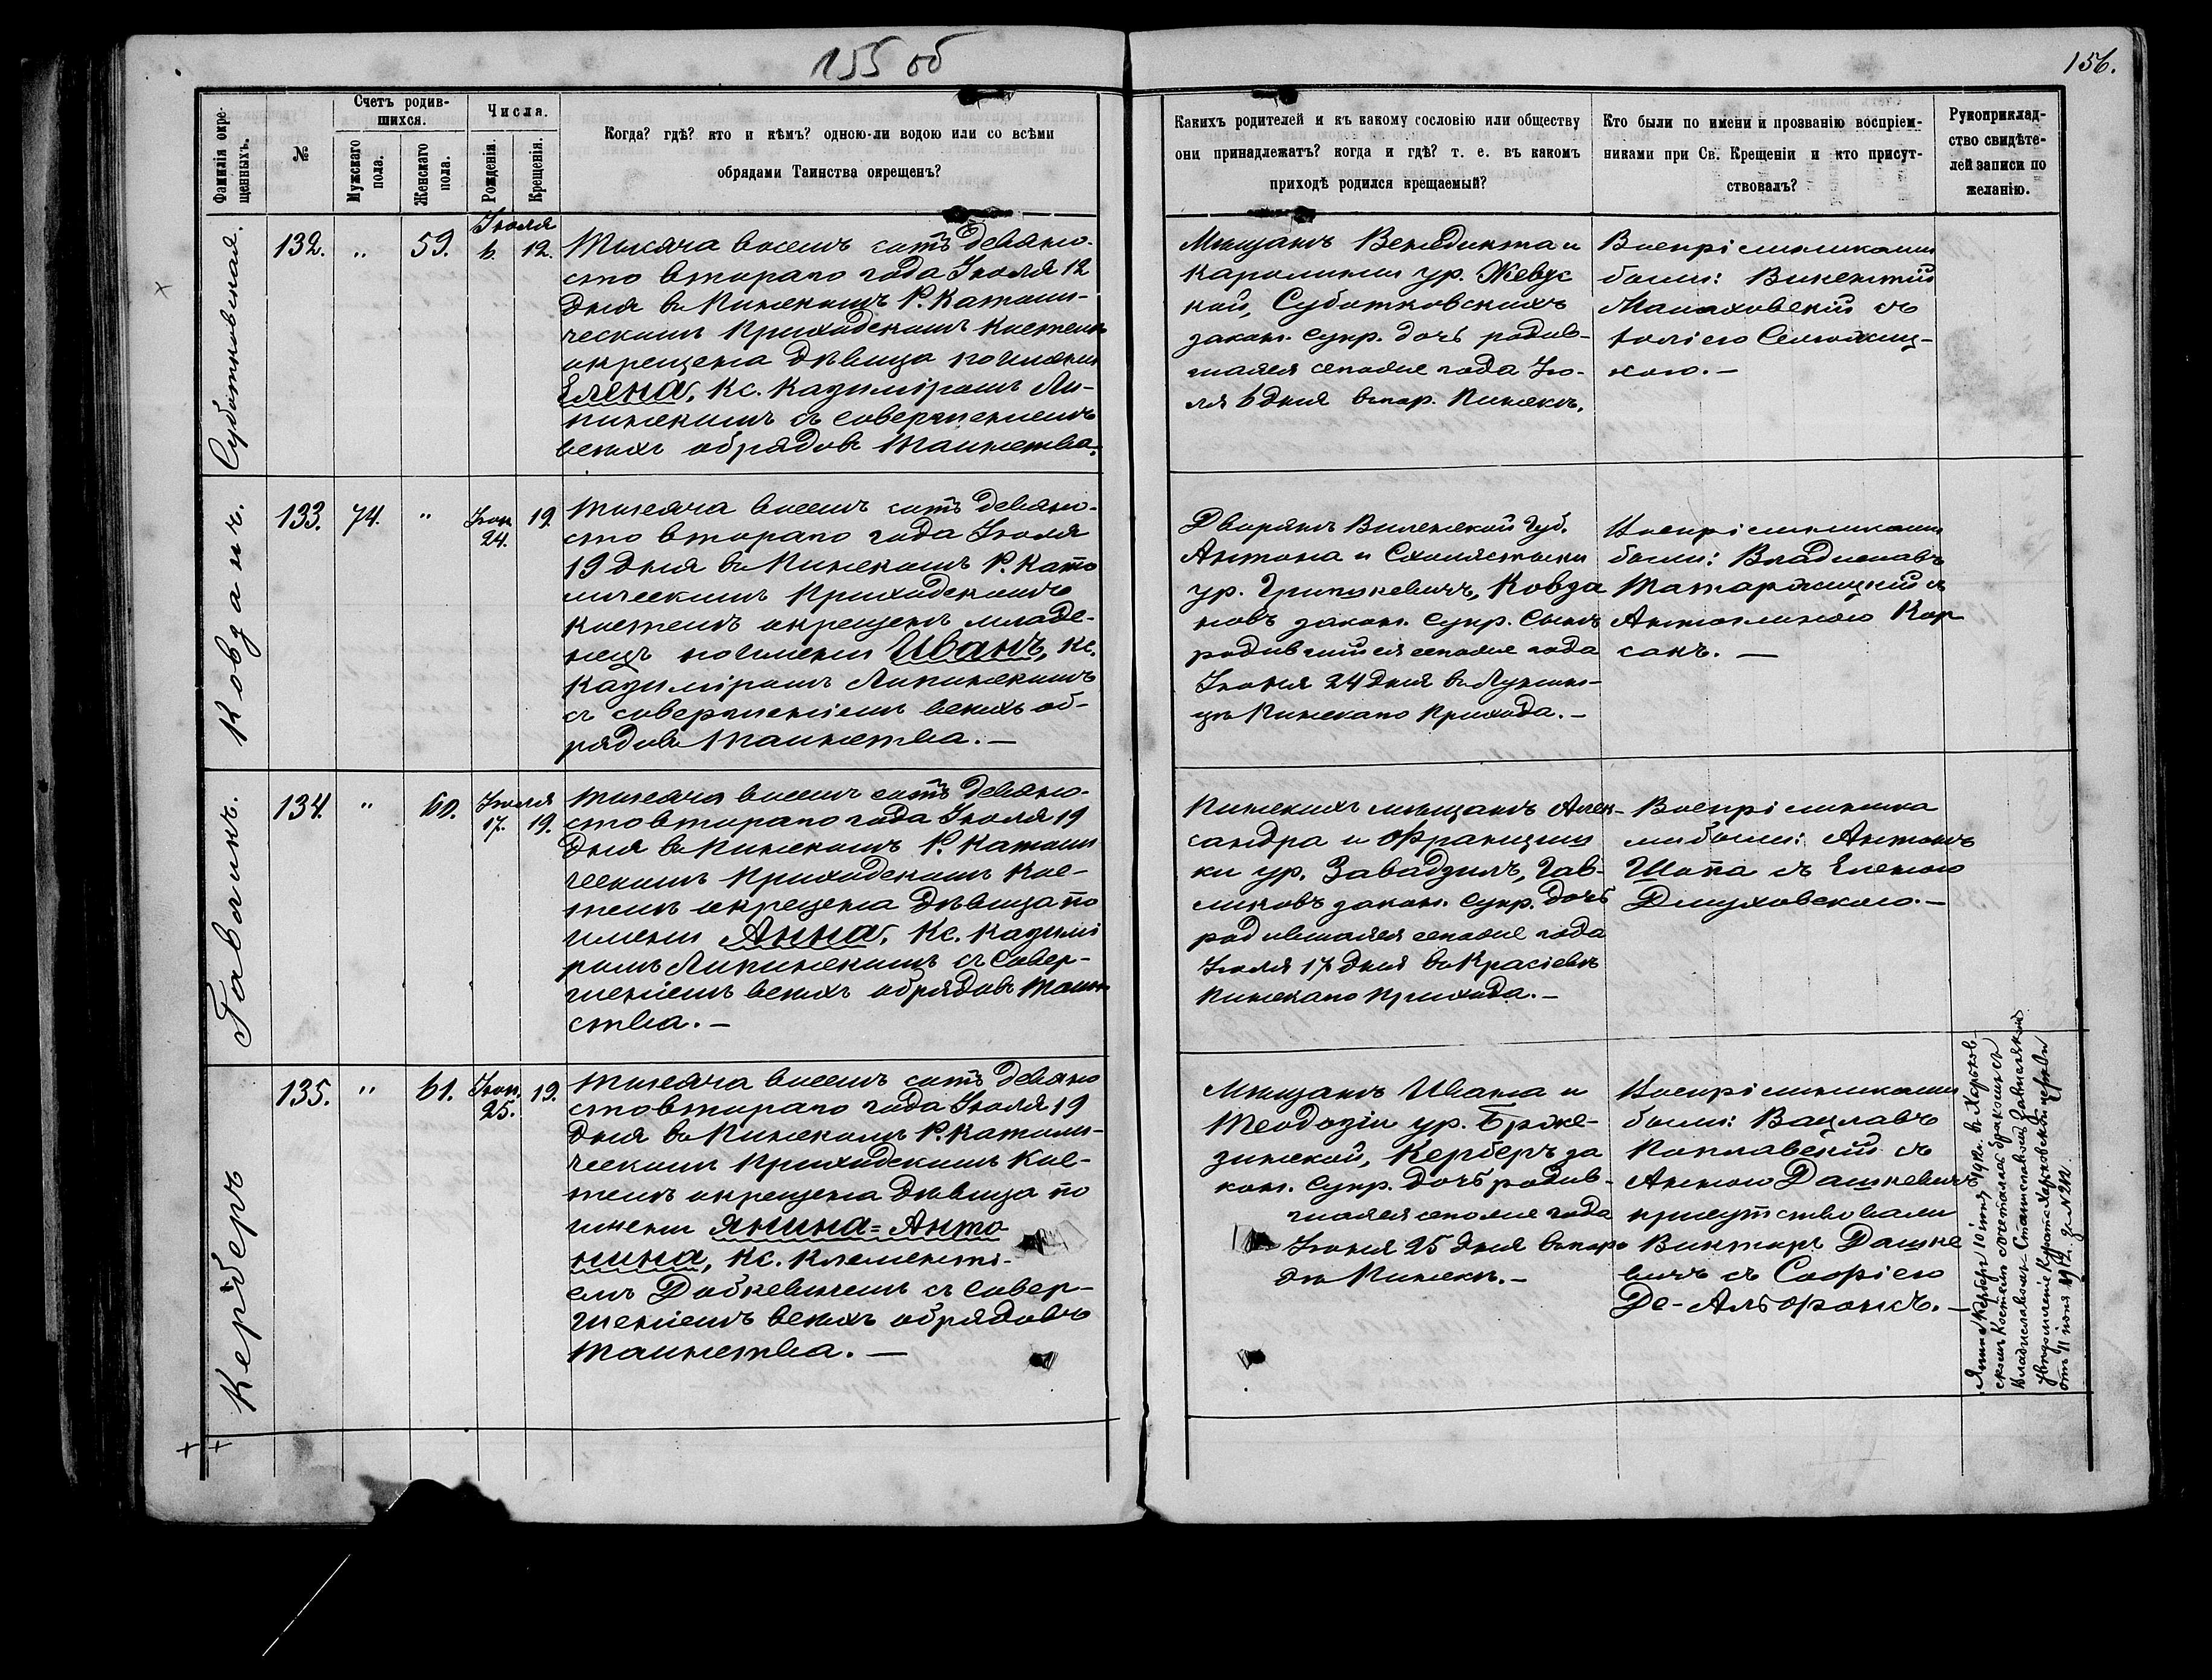 155 об
156.
Фамилія окре-
щенныхъ.
№
Счетъ родив-
шихся.
Мужскаго
пола.
Женскаго
пола.
Числа.
Рожденія.
Крещенія.
Когда? гдѣ? кто и кѣмъ? одною-ли водою или со всѣми
обрядами Таинства окрещенъ?
Какихъ родителей и къ какому сословію или обществу
они принадлежатъ? когда и гдѣ? т. е. въ какомъ
приходѣ родился крещаемый?
Кто были по имени и прозванію воспріем-
никами при Св. Крещеніи и кто присут-
ствовалъ?
Рукоприклад-
ство свидѣте-
лей записи по
желанію.
Суботковская.
132.
„
59.
Іюля
6.
12.
Тысяча восемь сотъ девяно-
сто втораго года Іюля 12
дня въ Пинскомъ Р. КатОли-
ческомъ Приходскомъ Костелѣ
окрещена дѣвица по имени
Елена, Кс. Казиміромъ Ли-
пинскимъ съ совершеніемъ
всехъ обрядовъ Таинства.
Мѣщанъ Венедикта и
Каролины ур. Жевус
кой, Суботковскихъ
закон. супр. дочь родив-
шаяся сегоже года Ію-
ля 6 дня въ гор. Пинскѣ.
Воспріемниками
были: Викентій
Малаховскій съ
кою.—
Ковзанъ.
133.
74.
„
Іюн
24.
19.
Тысяча восемь сотъ девяно-
сто втораго года Іюля
19 дня въ Пинскомъ Р. Като
лическомъ Приходскомъ
Костелѣ окрещенъ младе-
нецъ по имени Иванъ, Кс.
Казиміромъ Липинскимъ
съ совершеніемъ всехъ об-
рядовъ Таинства.—
Дворянъ Виленской Губ.
Антона и Схолястыки
ур. Гришкевичъ, Ковза
новъ закон. супр. сынъ
родившійся сегоже года
Іюня 24 дня въ Лунин-
цѣ Пинскаго Прихода.—
Воспріемниками
были: Владиславъ
Татаржицкій съ
Антониною Кор
сакъ.—
Гавликъ.
134.
„
60.
Іюля
17.
19.
Тысяча восемь сотъ девяно-
сто втораго года Іюля 19
дня въ Пинскомъ Р. Католи
ческомъ Приходскомъ Кос-
телѣ окрещена дѣвица по
имени Анна, Кс. Казимі
ромъ Липинскимъ съ совер-
шеніемъ всехъ обрядовъ Таин
ства.—
Пинскихъ мѣщанъ Алек-
сандра и Францишки
ки ур. Завадзилъ, Гав-
ликовъ закон. супр. дочь
родившаяся сегоже года
Іюля 17 дня въ Красіевѣ
Пинскаго Прихода.—
Воспріемника
ми были: Антонъ
Шопа съ Еленою
Длуховскою.—
Керберъ
135.
„
61.
Іюн.
25.
19.
Тысяча восемь сотъ девяно
сто втораго года Іюля 19
дня въ Пинскомъ Р. Католи-
ческомъ Приходскомъ Кос-
телѣ окрещена дѣвица по
имени Янина=Анто
нина, Кс. Клементі-
емъ Добкевичемъ съ совер-
шеніемъ всехъ обрядовъ
Таинства.—
Мѣщанъ Ивана и
Теодозіи ур. Брже-
зинской, Керберъ за
кон. супр. дочь родив-
шаяся сегоже года
Іюня 25 дня въ горо
дѣ Пинскѣ.—
Воспріемниками
были: Вацлавъ
Поплавскій съ
Анною Дашкевичъ
присутствовали
Викторъ Дашке
вичъ съ Софіею
Де-Альфонсъ.—
Янина Керберъ 10 іюня 1912г. въ Харьков-
скомъ Костелѣ сочеталась бракомъ съ
Владиславомъ-Станиславомъ
увѣдомленіе Курата Харьковской церкви
отъ 11 іюня 1912 г. за №